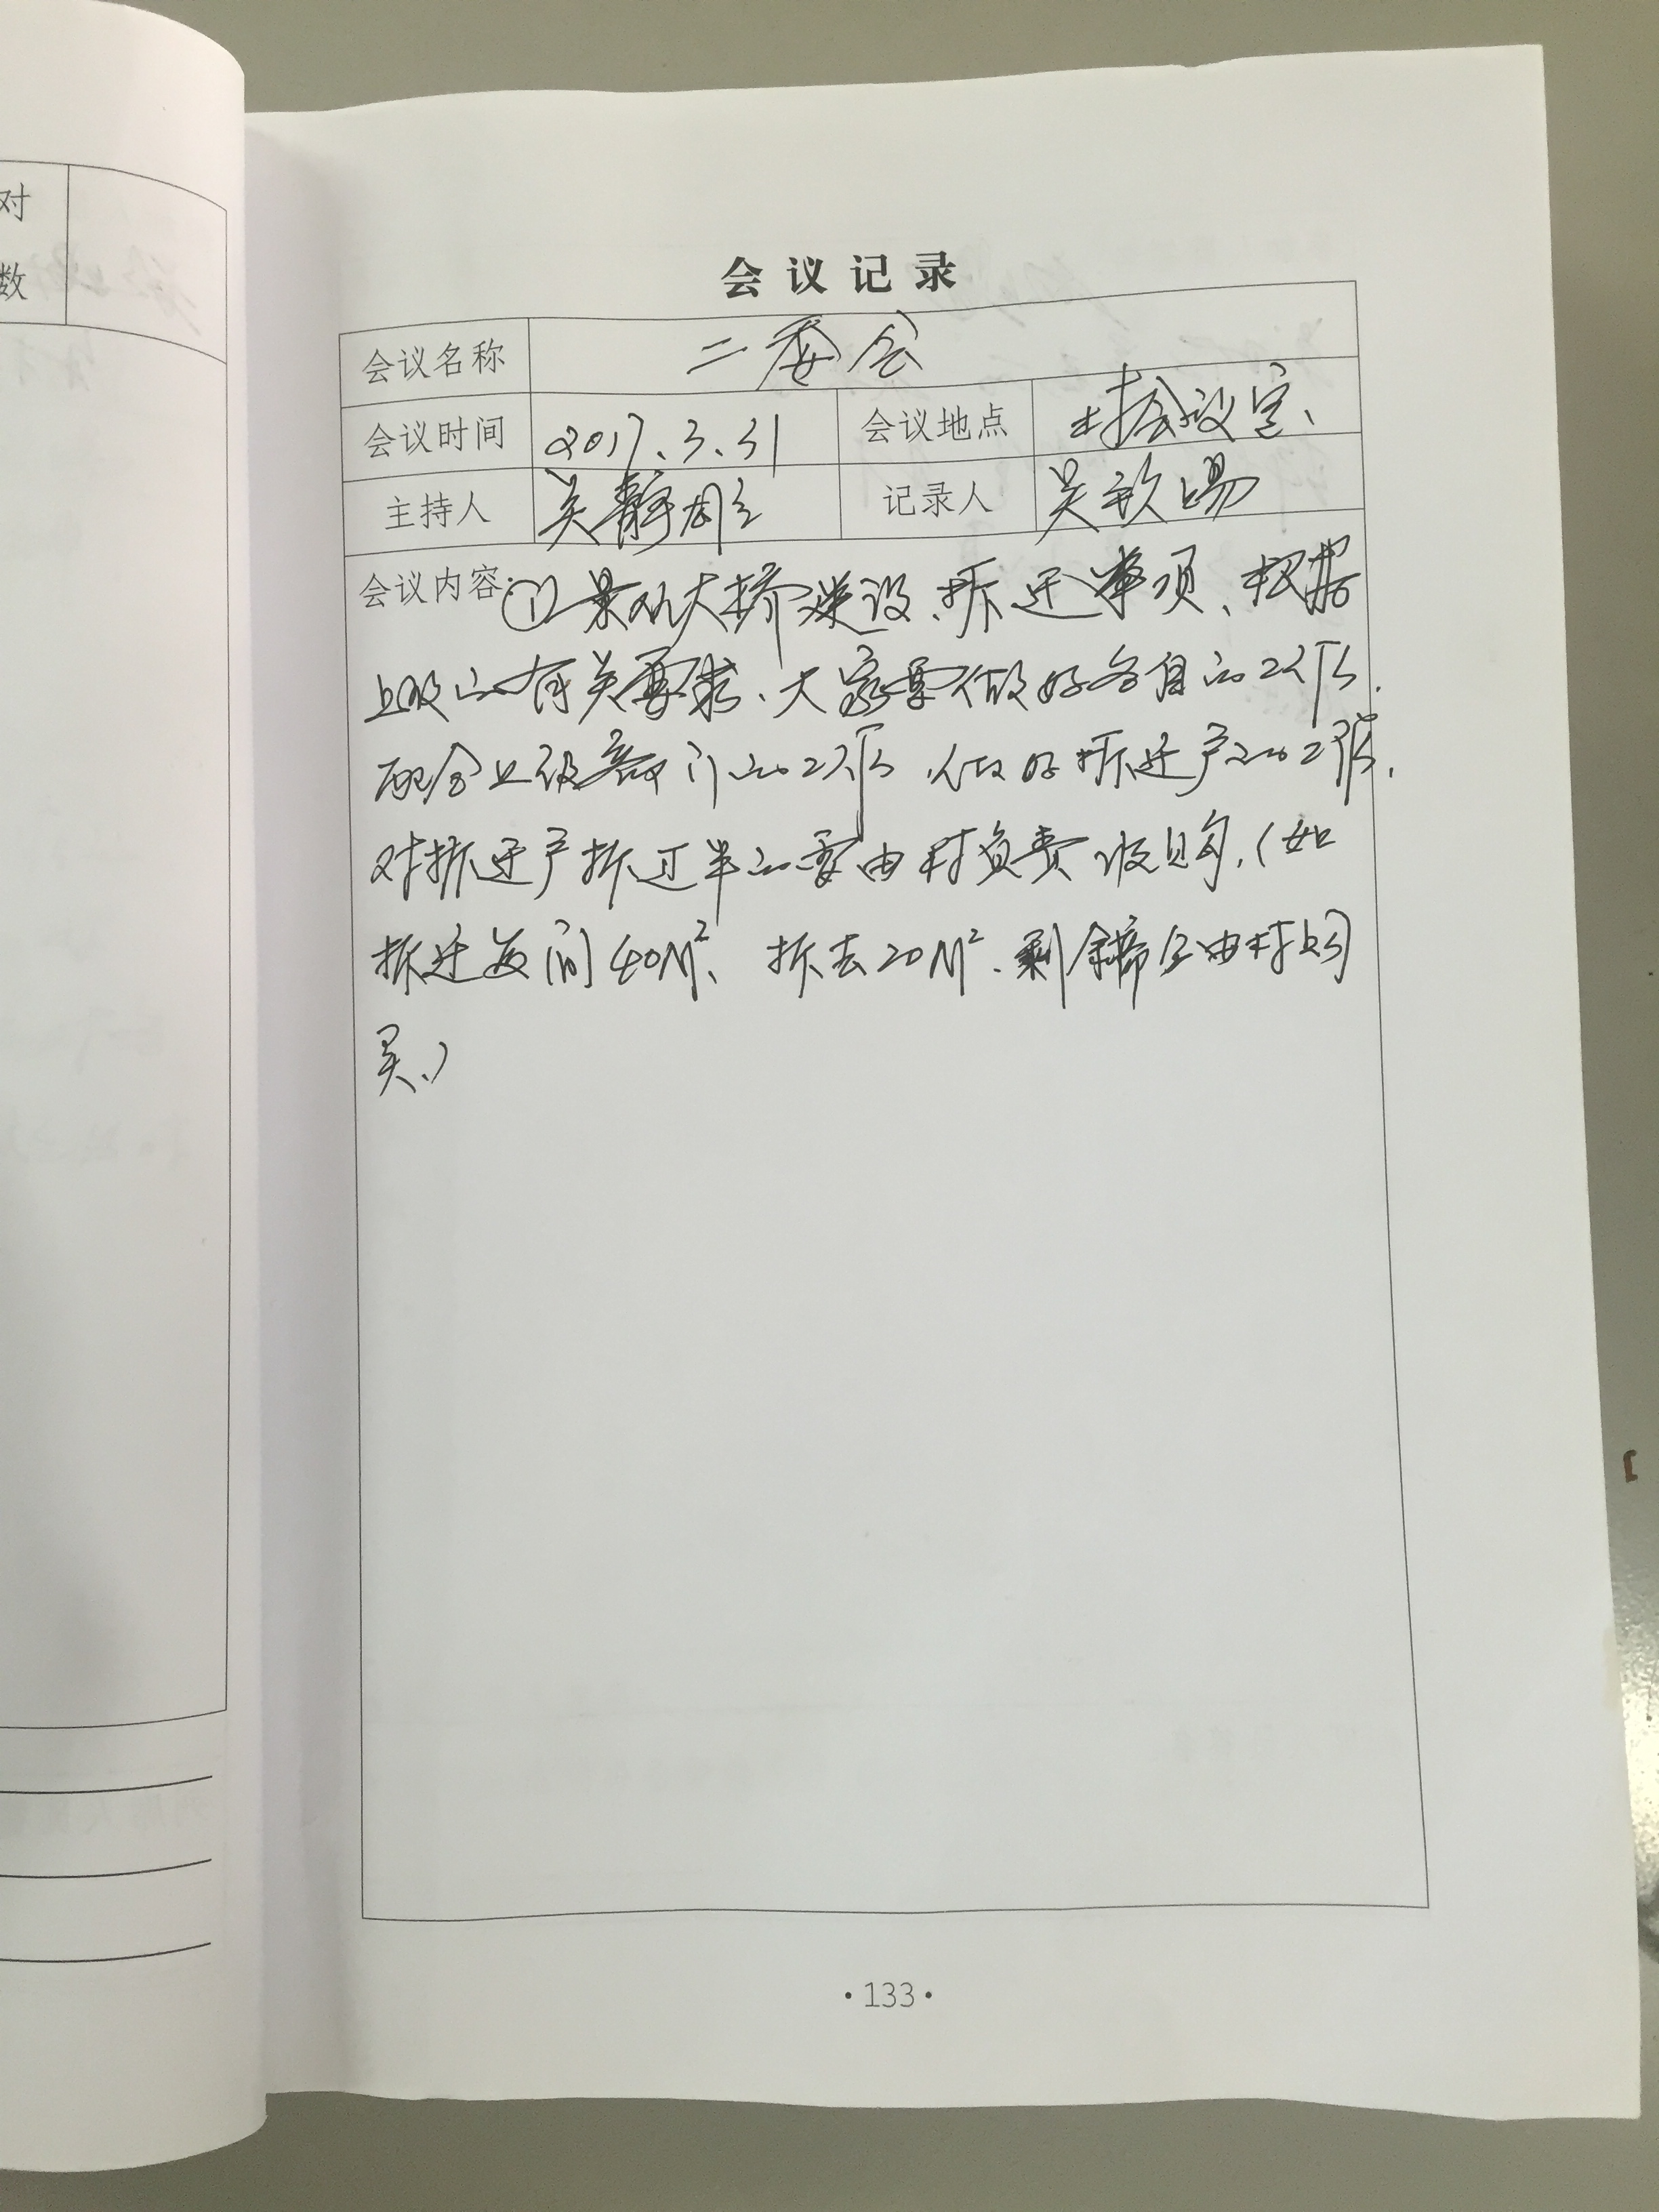 对
数
会议记录
会议名称 二委会
会议时间 2017.3.31 会议地点 村会议室、
主持人 吴静 记录人 吴
会议内容: ① 大桥建设、拆迁事项、根据
上级的有关要求、大家要做好各自的工作.
配合上级部门的工作,做好拆迁户的工作.
对拆迁户拆过半的要由村负责收购,(如
拆迁每间40M²、拆去20M²、剩余部分由村购
买、)
·133·